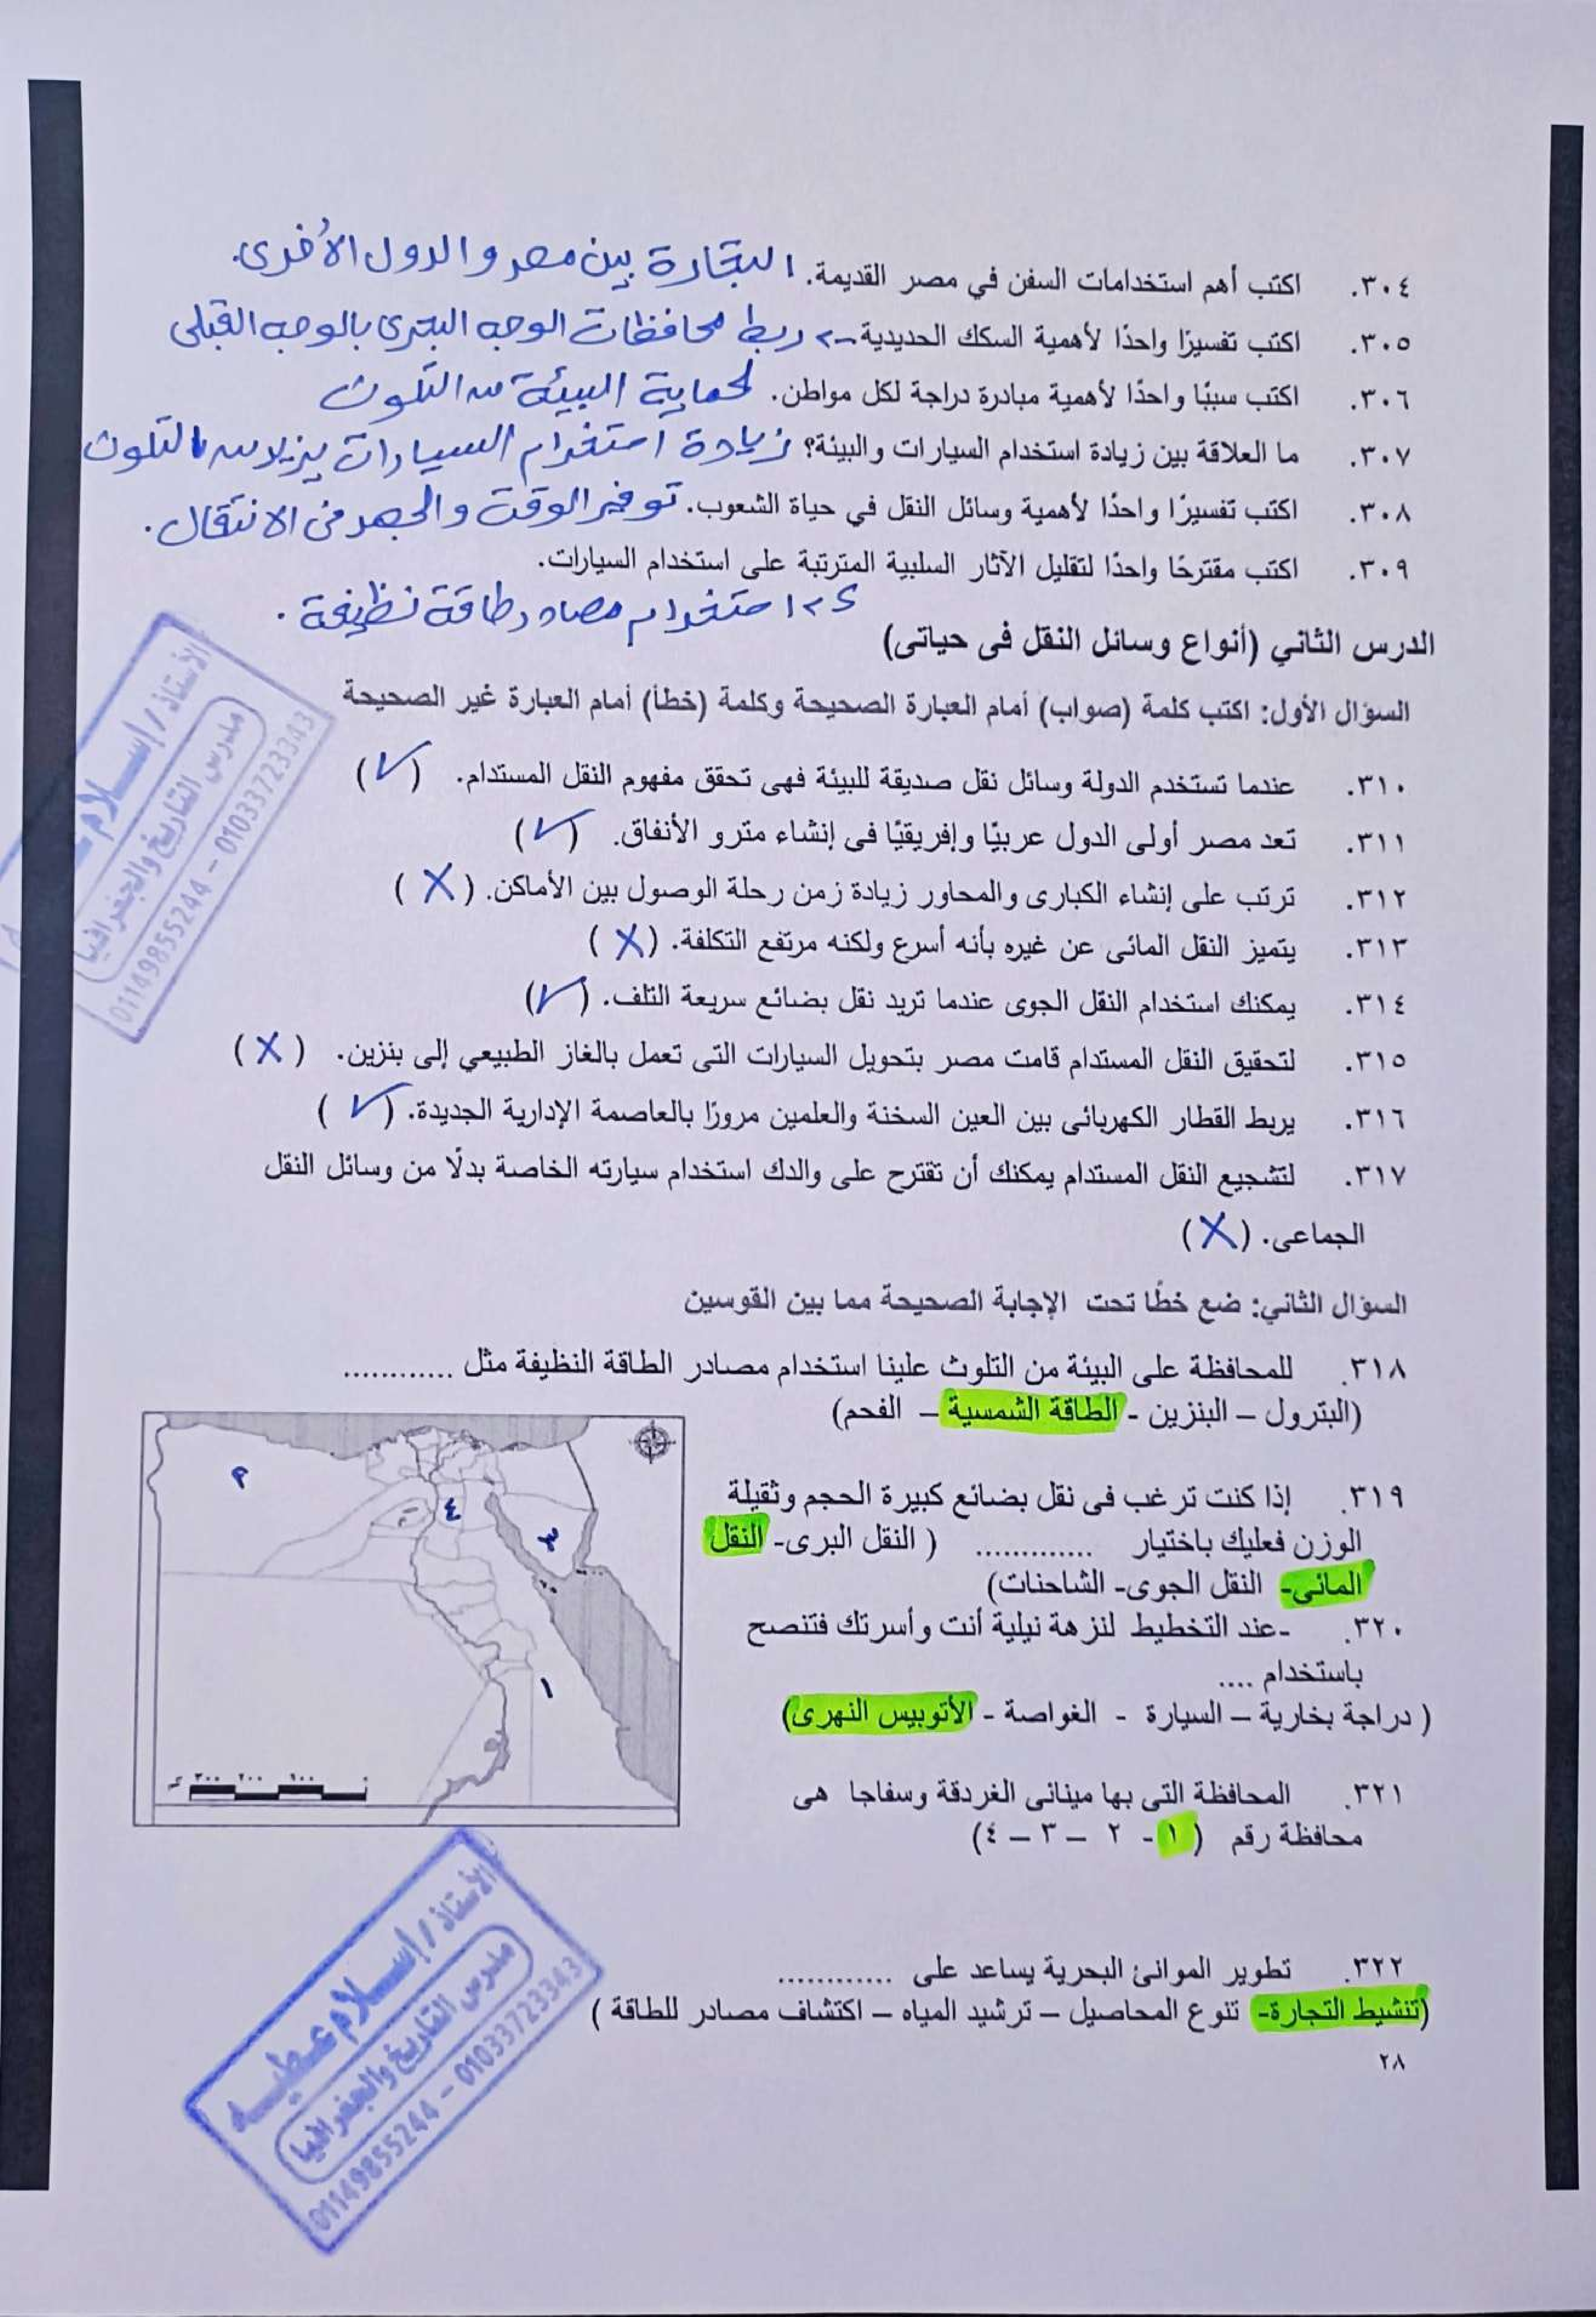 ٣٠٤. اكتب أهم استخدامات السفن في مصر القديمة. التجارة بين مصر والدول الأُخرى.
٣٠٥. اكتب تفسيرًا واحدًا لأهمية السكك الحديدية -> ربط محافظات الوجه البحرى بالوجه القبلى
٣٠٦. اكتب سببًا واحدًا لأهمية مبادرة دراجة لكل مواطن. لحماية البيئة من التلوث
٣٠٧. ما العلاقة بين زيادة استخدام السيارات والبيئة؟ زيادة استخدام السيارات يزيد من التلوث
٣٠٨. اكتب تفسيرًا واحدًا لأهمية وسائل النقل في حياة الشعوب. توفير الوقت والجهد فى الانتقال.
٣٠٩. اكتب مقترحًا واحدًا لتقليل الآثار السلبية المترتبة على استخدام السيارات.
استخدام مصادر طاقة نظيفة.
الدرس الثاني (أنواع وسائل النقل فى حياتى)
السؤال الأول: اكتب كلمة (صواب) أمام العبارة الصحيحة وكلمة (خطأ) أمام العبارة غير الصحيحة
٣١٠. عندما تستخدم الدولة وسائل نقل صديقة للبيئة فهى تحقق مفهوم النقل المستدام. (✓)
٣١١. تعد مصر أولى الدول عربيًا وإفريقيًا فى إنشاء مترو الأنفاق. (✓)
٣١٢. ترتب على إنشاء الكبارى والمحاور زيادة زمن رحلة الوصول بين الأماكن. (X)
٣١٣. يتميز النقل المائى عن غيره بأنه أسرع ولكنه مرتفع التكلفة. (X)
٣١٤. يمكنك استخدام النقل الجوى عندما تريد نقل بضائع سريعة التلف. (✓)
٣١٥. لتحقيق النقل المستدام قامت مصر بتحويل السيارات التى تعمل بالغاز الطبيعي إلى بنزين. (X)
٣١٦. يربط القطار الكهربائى بين العين السخنة والعلمين مرورًا بالعاصمة الإدارية الجديدة. (✓)
٣١٧. لتشجيع النقل المستدام يمكنك أن تقترح على والدك استخدام سيارته الخاصة بدلًا من وسائل النقل
الجماعى. (X)
السؤال الثاني: ضع خطًا تحت الإجابة الصحيحة مما بين القوسين
٣١٨. للمحافظة على البيئة من التلوث علينا استخدام مصادر الطاقة النظيفة مثل ............
(البترول – البنزين - الطاقة الشمسية – الفحم)
٣١٩. إذا كنت ترغب فى نقل بضائع كبيرة الحجم وثقيلة
الوزن فعليك باختيار ............. ( النقل البرى- النقل
المائى- النقل الجوى- الشاحنات)
٣٢٠. -عند التخطيط لنزهة نيلية أنت وأسرتك فتنصح
باستخدام ....
( دراجة بخارية – السيارة - الغواصة - الأتوبيس النهرى)
٣٢١. المحافظة التى بها مينائى الغردقة وسفاجا هى
محافظة رقم (١ - ٢ – ٣ – ٤)
٤
٣
١
٠ ١٠٠ ٢٠٠ ٣٠٠ كم
٣٢٢. تطوير الموانئ البحرية يساعد على ............
(تنشيط التجارة- تنوع المحاصيل – ترشيد المياه – اكتشاف مصادر للطاقة )
٢٨
الأستاذ / إسلام
مدرس التاريخ والجغرافيا
01149855244 - 01033723343
الأستاذ / إسلام عطيه
مدرس التاريخ والجغرافيا
01149855244 - 01033723343